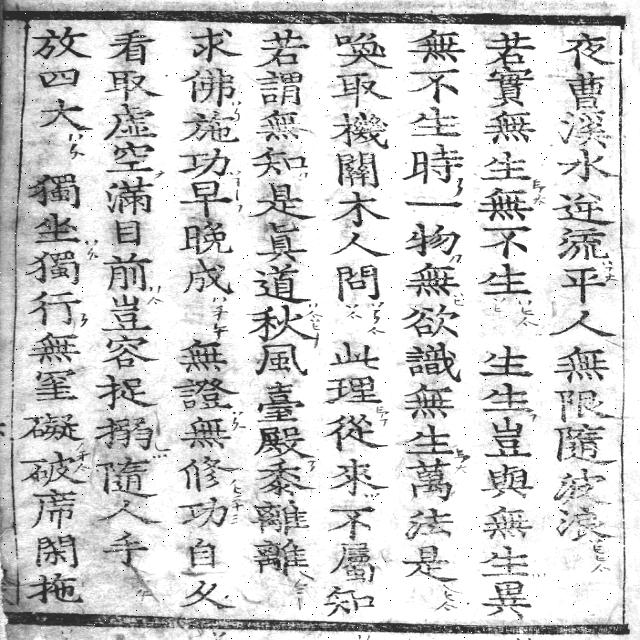 夜曹溪水逆流平人無限隨波浪
若實無生無不生生生豈與無生異
無不生時一物無欲識無生萬法是
喚取機關木人問此理從來不屬知
若謂無知是眞道秋風臺殿黍離離
求佛施功早晚成無證無修功自久
看取虛空滿目前豈容捉搦隨人手
放四大獨坐獨行無窒礙破席閑拖